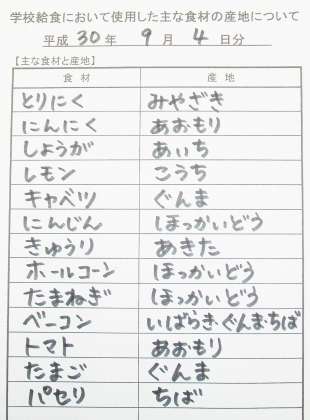 学校給食において使用した主な食材の産地について
平成 30 年 9 月 4 日分
【主な食材と産地】
食材 産地
とりにく みやざき
にんにく あおもり
しょうが あいち
レモン こうち
キャベツ ぐんま
にんじん ほっかいどう
きゅうり あきた
ホールコーン ほっかいどう
たまねぎ ほっかいどう
ベーコン いばらき・ぐんま・ちば
トマト あおもり
たまご ぐんま
パセリ ちば